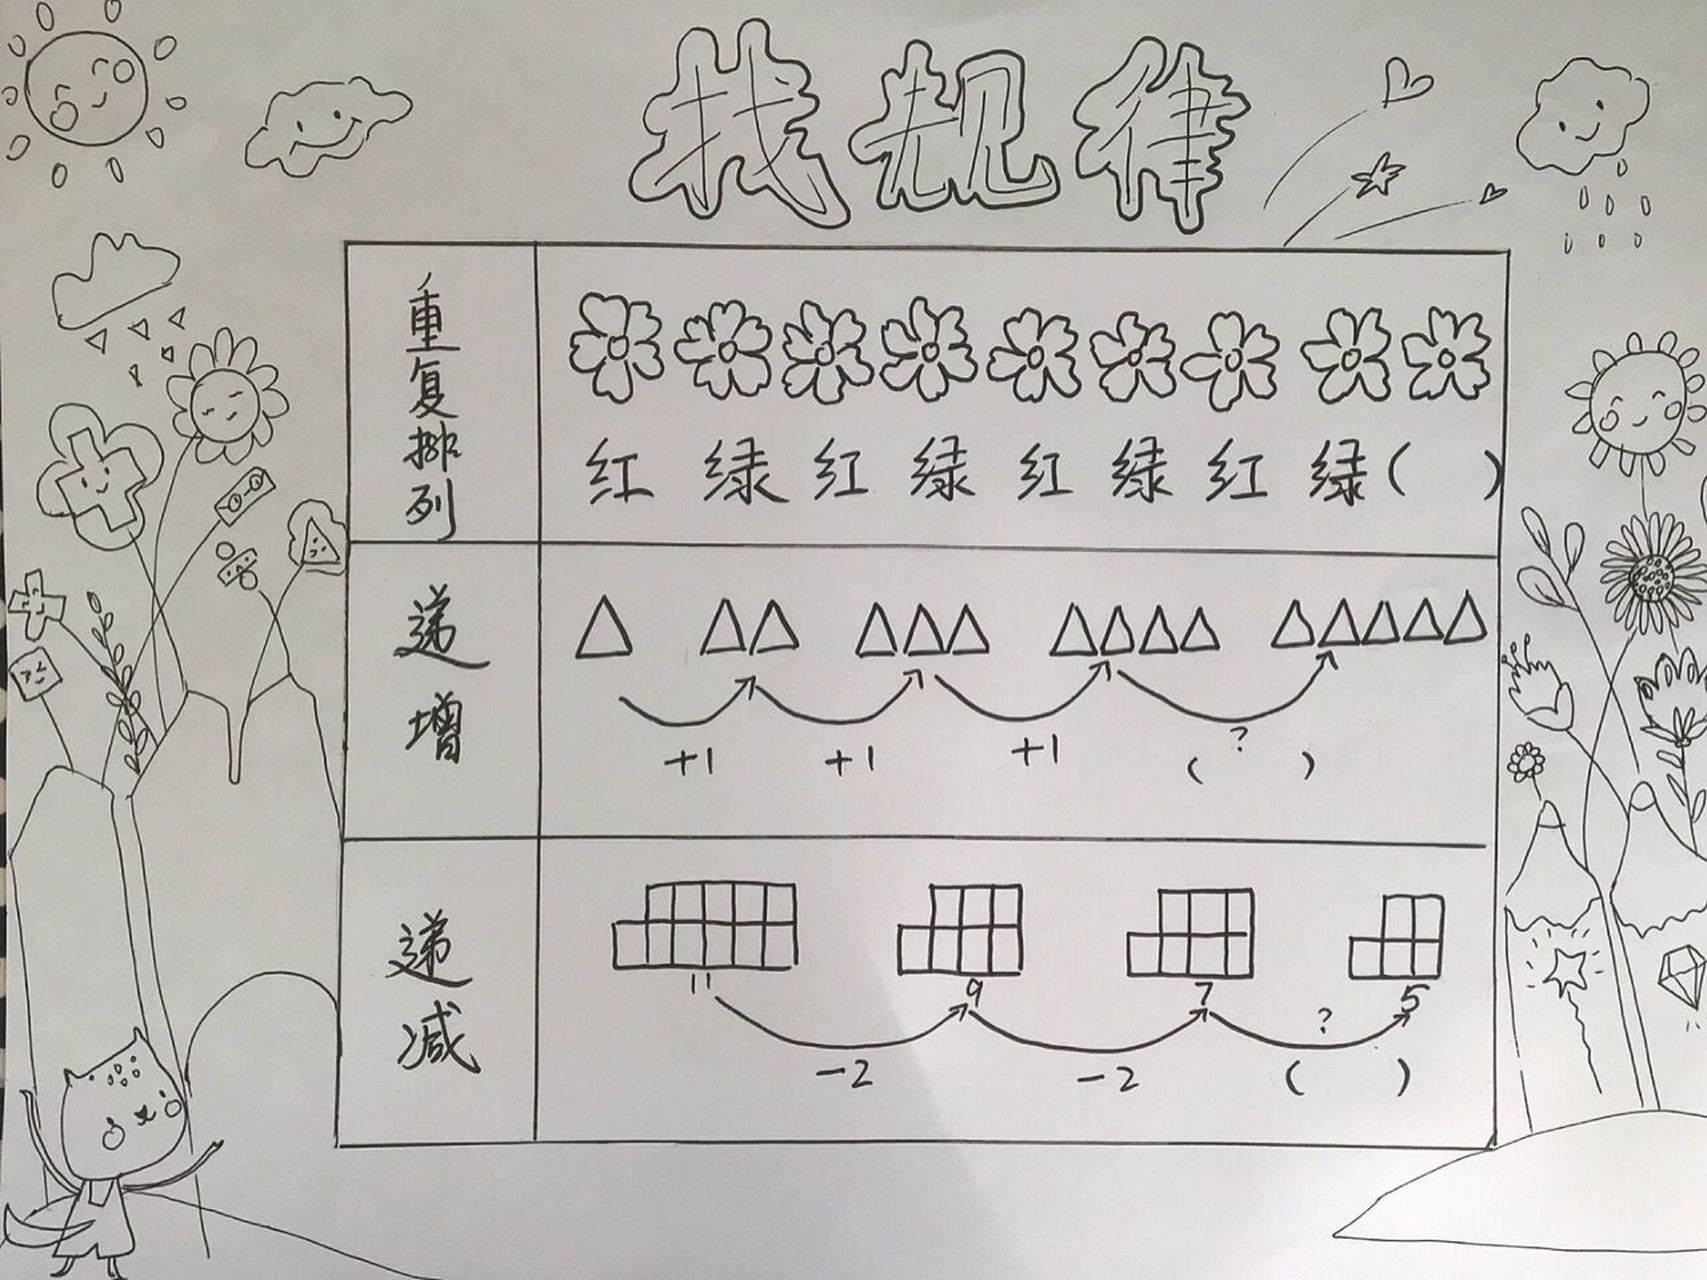 找规律
重复排列
红 绿 红 绿 红 绿 红 绿 (  )
递增
+1 +1 +1 ( ? )
递减
11 9 7 5
-2 -2 ( ? )